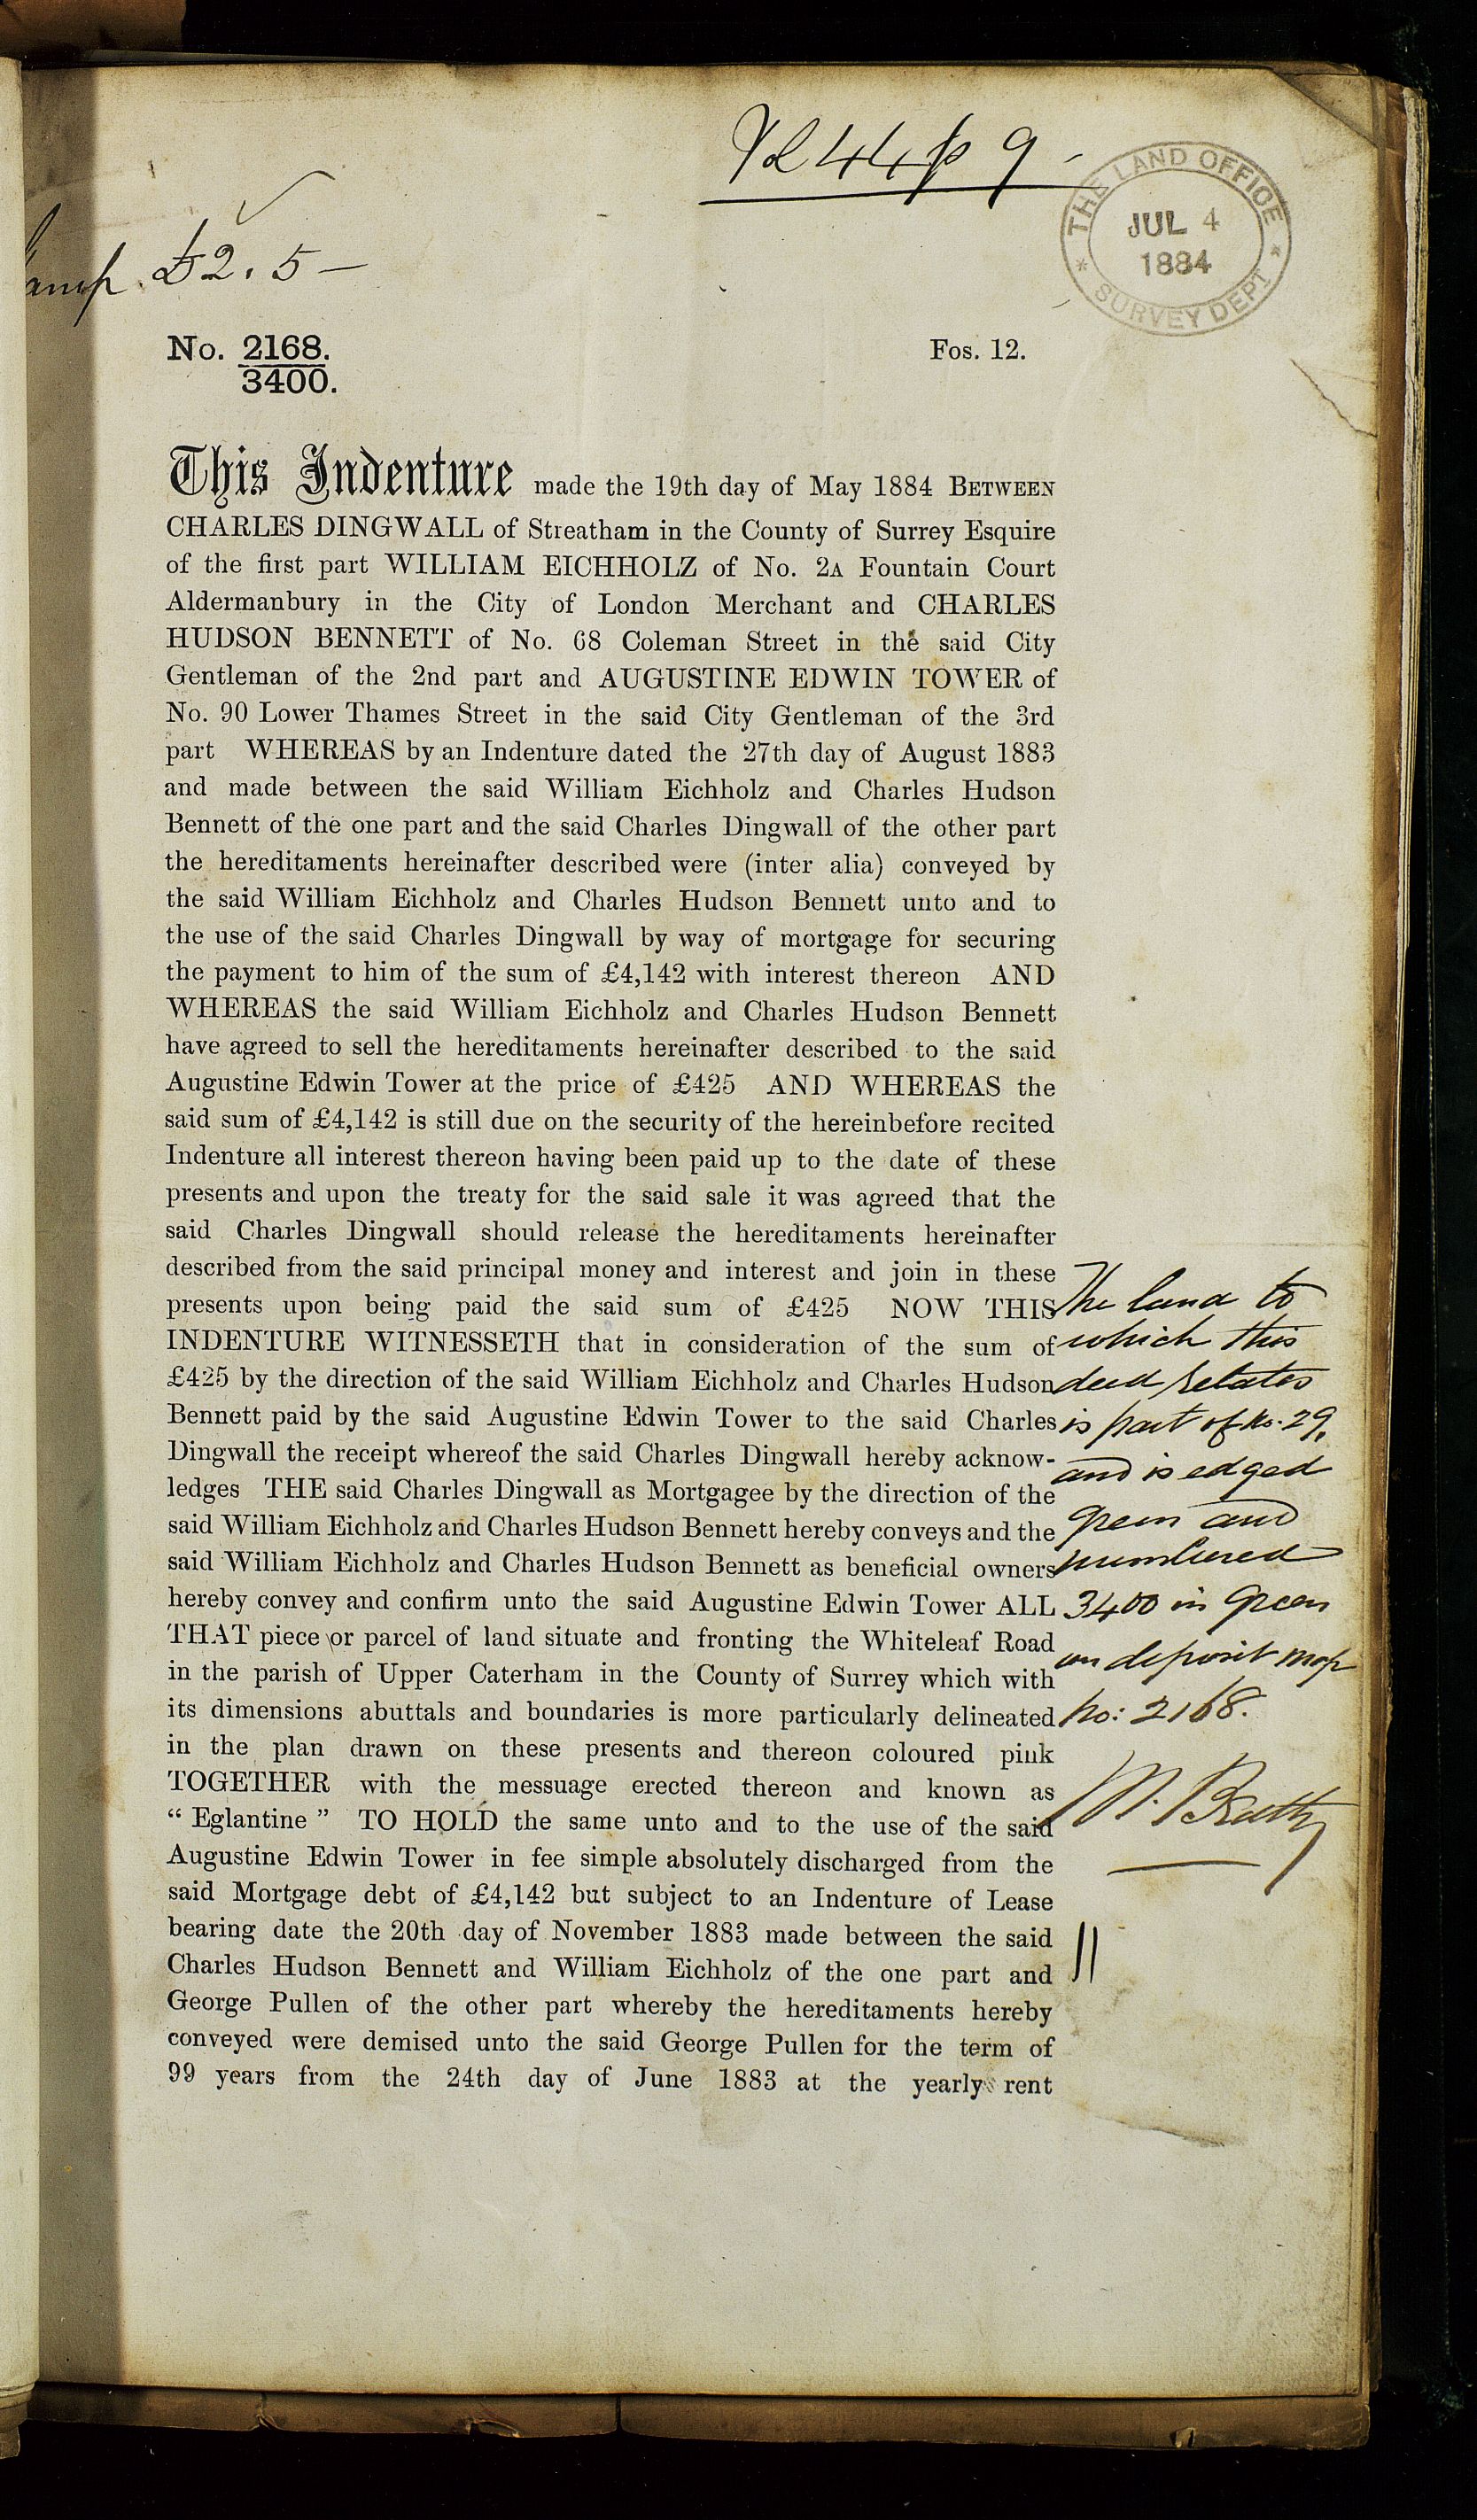 44 p 9
THE LAND OFFICE
JUL 4
1884
SURVEY DEPT
£2. 5 —
No. 2168.
3400.
Fos. 12.
This Indenture made the 19th day of May 1884 BETWEEN
CHARLES DINGWALL of Streatham in the County of Surrey Esquire
of the first part WILLIAM EICHHOLZ of No. 2A Fountain Court
Aldermanbury in the City of London Merchant and CHARLES
HUDSON BENNETT of No. 68 Coleman Street in the said City
Gentleman of the 2nd part and AUGUSTINE EDWIN TOWER of
No. 90 Lower Thames Street in the said City Gentleman of the 3rd
part WHEREAS by an Indenture dated the 27th day of August 1883
and made between the said William Eichholz and Charles Hudson
Bennett of the one part and the said Charles Dingwall of the other part
the hereditaments hereinafter described were (inter alia) conveyed by
the said William Eichholz and Charles Hudson Bennett unto and to
the use of the said Charles Dingwall by way of mortgage for securing
the payment to him of the sum of £4,142 with interest thereon AND
WHEREAS the said William Eichholz and Charles Hudson Bennett
have agreed to sell the hereditaments hereinafter described to the said
Augustine Edwin Tower at the price of £425 AND WHEREAS the
said sum of £4,142 is still due on the security of the hereinbefore recited
Indenture all interest thereon having been paid up to the date of these
presents and upon the treaty for the said sale it was agreed that the
said Charles Dingwall should release the hereditaments hereinafter
described from the said principal money and interest and join in these
presents upon being paid the said sum of £425 NOW THIS
INDENTURE WITNESSETH that in consideration of the sum of
£425 by the direction of the said William Eichholz and Charles Hudson
Bennett paid by the said Augustine Edwin Tower to the said Charles
Dingwall the receipt whereof the said Charles Dingwall hereby acknow-
ledges THE said Charles Dingwall as Mortgagee by the direction of the
said William Eichholz and Charles Hudson Bennett hereby conveys and the
said William Eichholz and Charles Hudson Bennett as beneficial owners
hereby convey and confirm unto the said Augustine Edwin Tower ALL
THAT piece or parcel of land situate and fronting the Whiteleaf Road
in the parish of Upper Caterham in the County of Surrey which with
its dimensions abuttals and boundaries is more particularly delineated
in the plan drawn on these presents and thereon coloured pink
TOGETHER with the messuage erected thereon and known as
“ Eglantine ” TO HOLD the same unto and to the use of the said
Augustine Edwin Tower in fee simple absolutely discharged from the
said Mortgage debt of £4,142 but subject to an Indenture of Lease
bearing date the 20th day of November 1883 made between the said
Charles Hudson Bennett and William Eichholz of the one part and
George Pullen of the other part whereby the hereditaments hereby
conveyed were demised unto the said George Pullen for the term of
99 years from the 24th day of June 1883 at the yearly rent
The land to
which this
deed relates
is part of No. 29,
and is edged
green and
numbered
3400 in green
on deposit map
No: 2168.